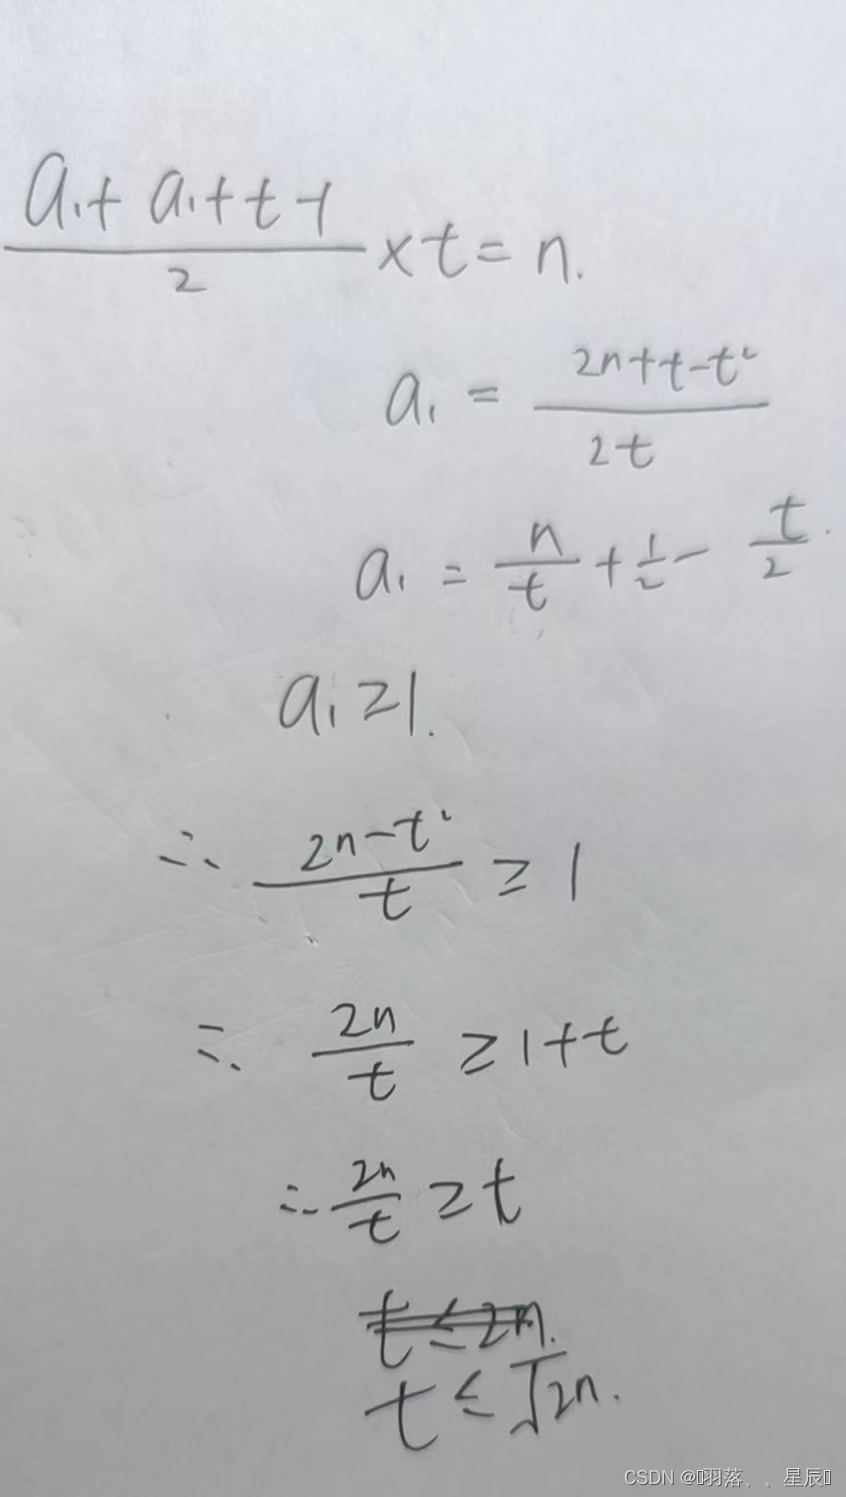 (a₁ + a₁ + t - 1)/2 × t = n.
a₁ = (2n + t - t²)/(2t)
a₁ = n/t + 1/2 - t/2.
a₁ ≥ 1.
∴ (2n - t²)/t ≥ 1
∴ 2n/t ≥ 1 + t
∴ 2n/t ≥ t
t ≤ 2n.
t ≤ √2n.
CSDN @羽落、、星辰